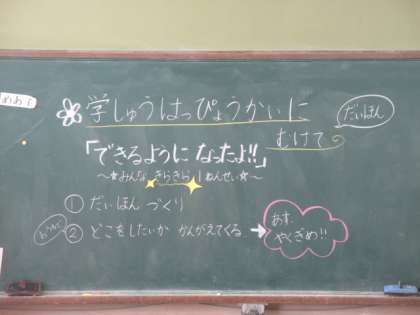 めあて
学しゅうはっぴょうかいに
むけて
だいほん
「できるように なったよ!!」
～★みんな きらきら 1ねんせい★～
① だいほん づくり
② どこをしたいか かんがえてくる
あす、
やくぎめ!!